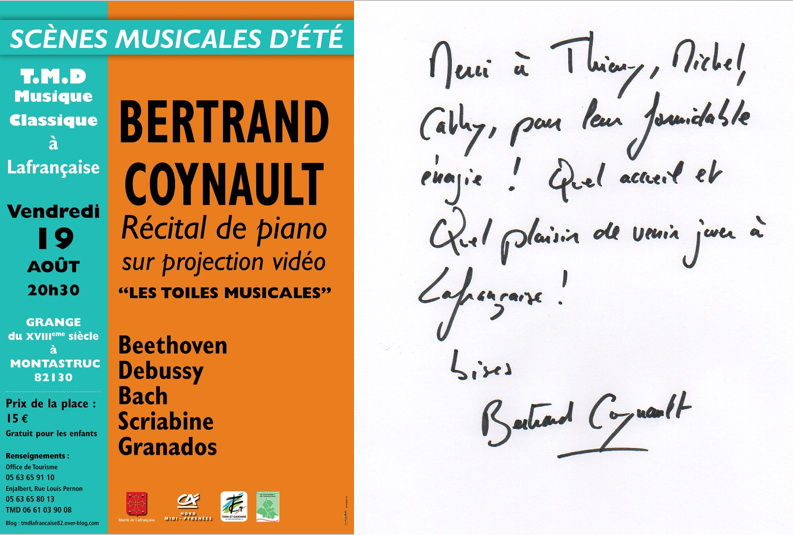 SCÈNES MUSICALES D'ÉTÉ
T.M.D
Musique
Classique
à
Lafrançaise
Vendredi
19
AOÛT
20h30
GRANGE
du XVIIIeme siècle
à
MONTASTRUC
82130
Prix de la place :
15 €
Gratuit pour les enfants
Renseignements :
Office de Tourisme
05 63 65 91 10
Enjalbert, Rue Louis Pernon
05 63 65 80 13
TMD 06 61 03 90 08
Blog : tmdlafrancaise82.over-blog.com
BERTRAND
COYNAULT
Récital de piano
sur projection vidéo
“LES TOILES MUSICALES”
Beethoven
Debussy
Bach
Scriabine
Granados
Mairie de Lafrançaise
CA
NORD
MIDI-PYRÉNÉES
TARN-ET-GARONNE
Merci à Thierry, Michel,
Cathy, pour leur formidable
énergie ! Quel accueil et
Quel plaisir de venir jouer à
Lafrançaise !
bises
Bertrand Coynault